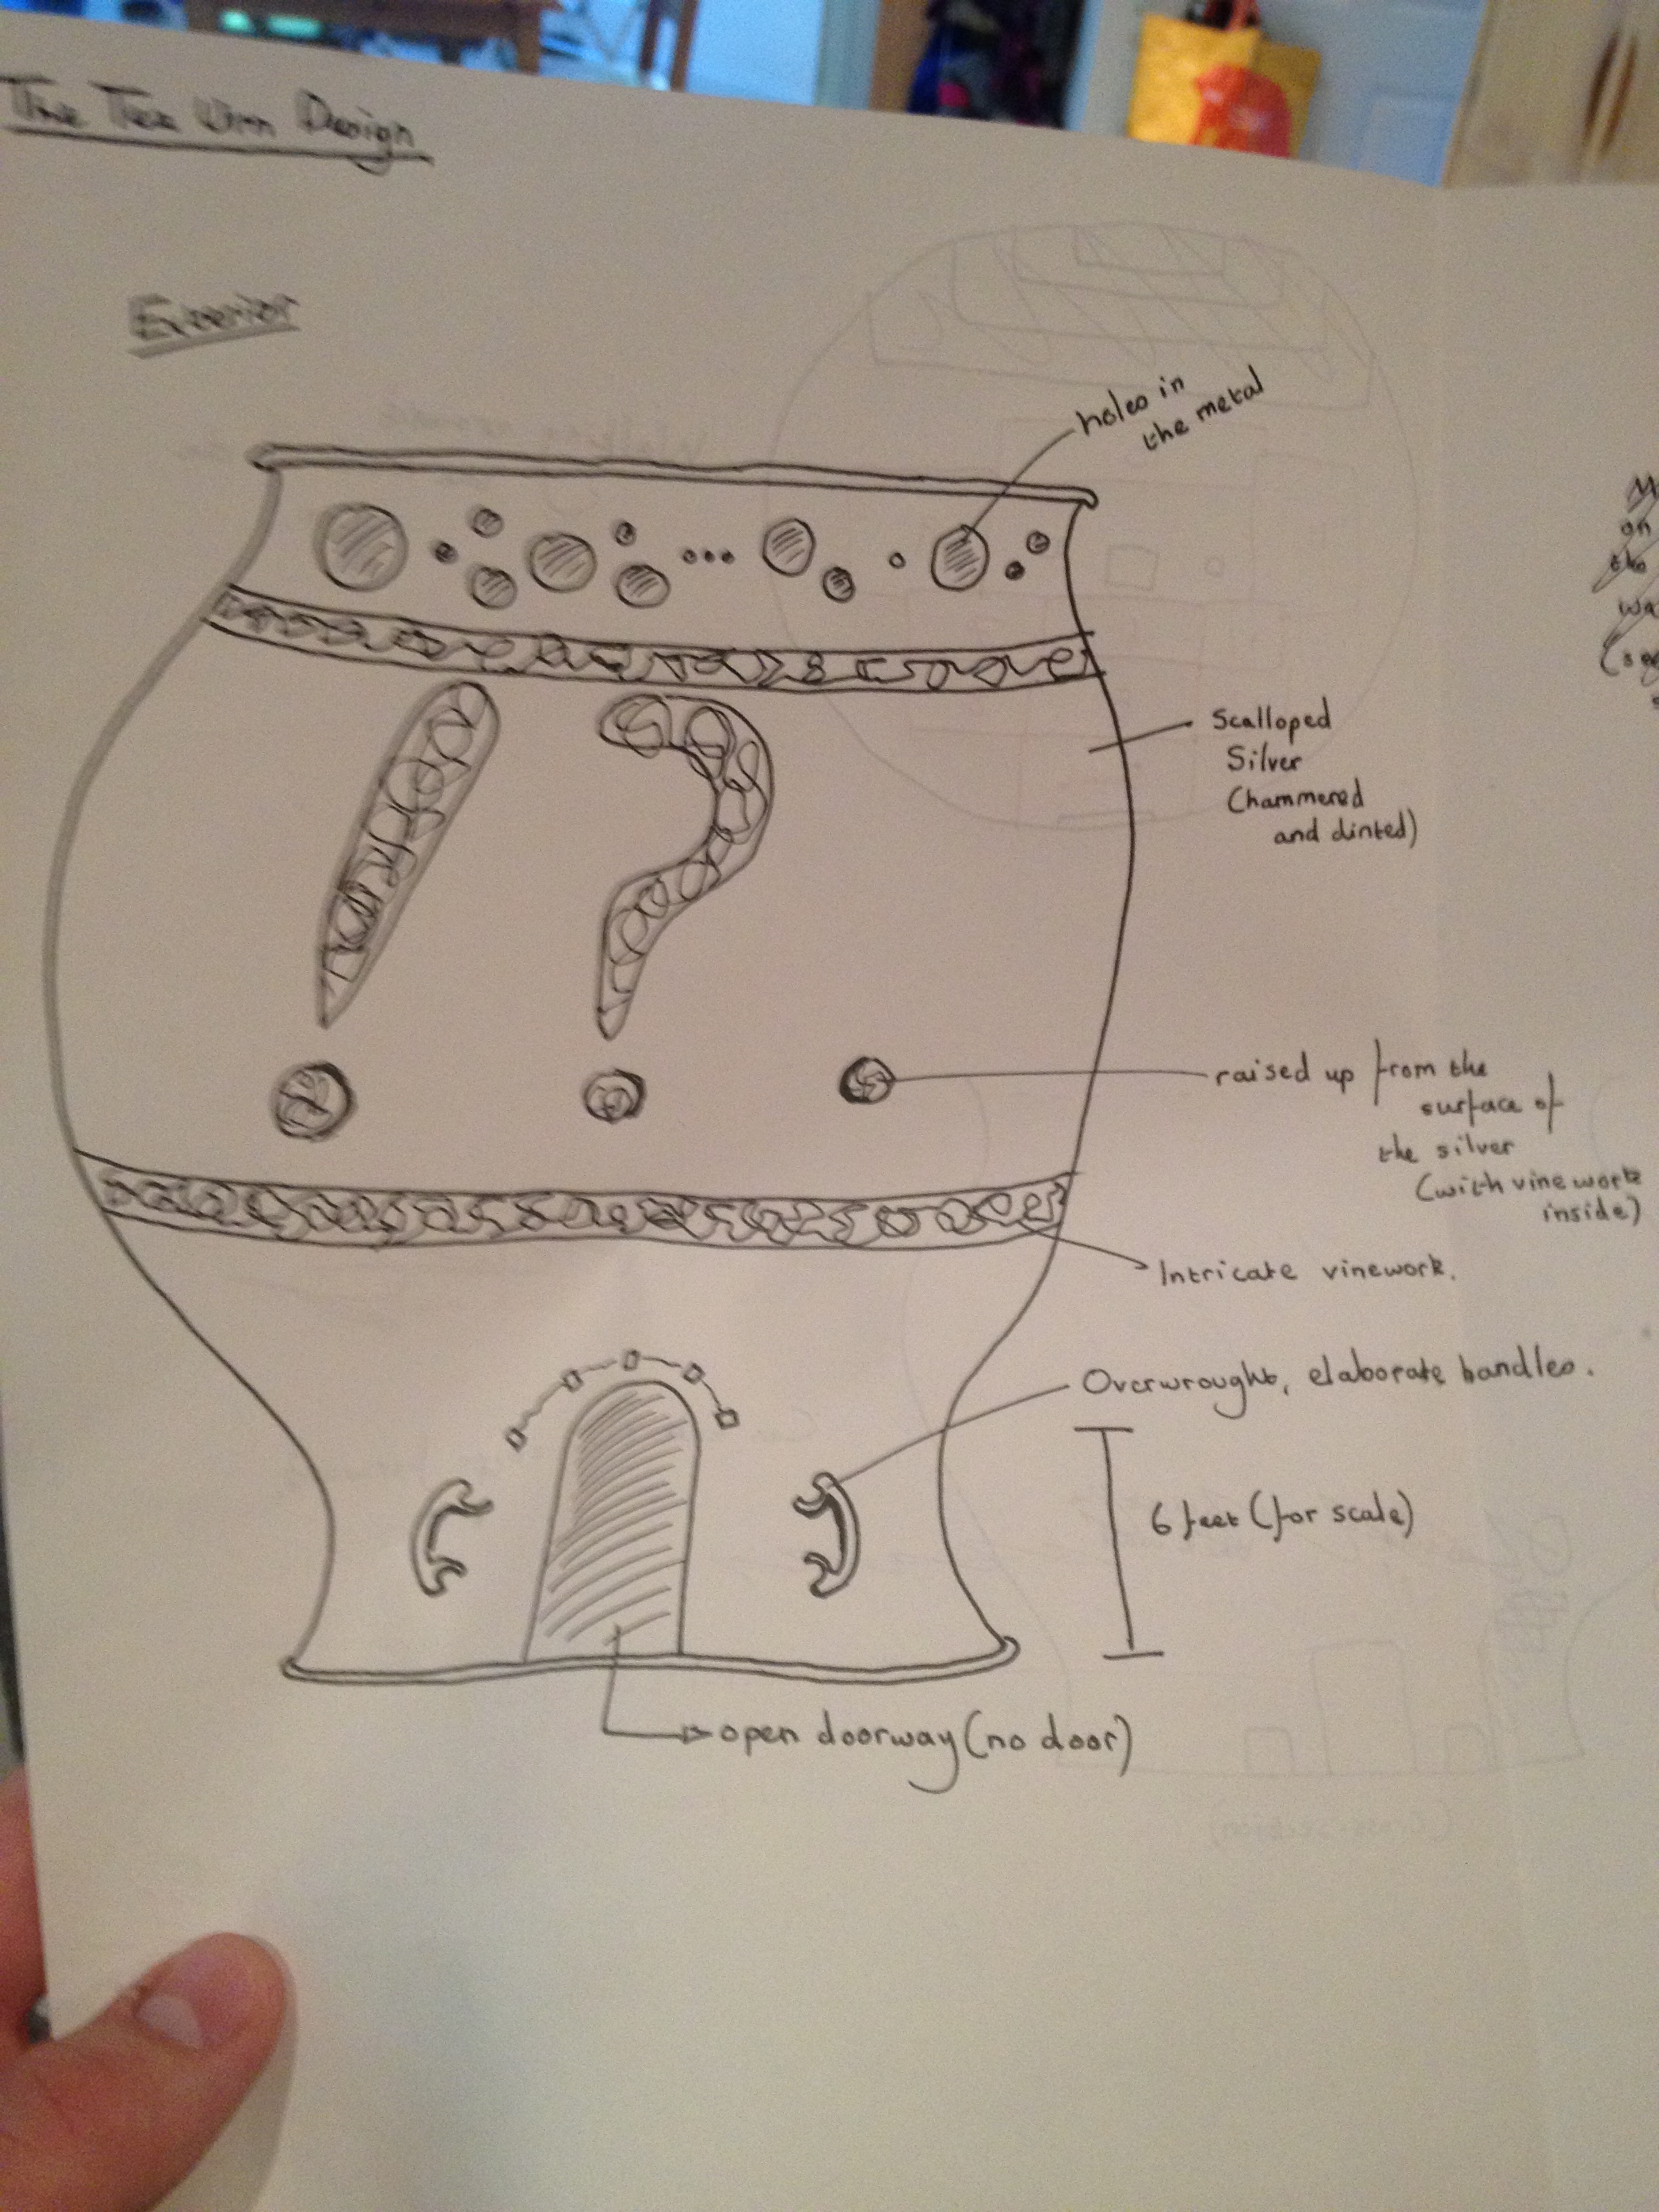 The Tea Urn Design
Exterior
holes in
the metal
Scalloped
Silver
(hammered
and dinted)
! ? .
raised up from the
surface of
the silver
(with vinework
inside)
Intricate vinework.
Overwrought, elaborate handles.
6 feet (for scale)
open doorway (no door)
on
the